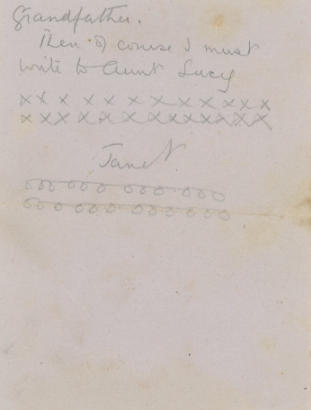 Grandfather.
Then of course I must
write to Aunt Lucy
x x x x x x x x x x x x
x x x x x x x x x x x x x
Janet
ooo ooo ooo ooo
ooo ooo ooo ooo